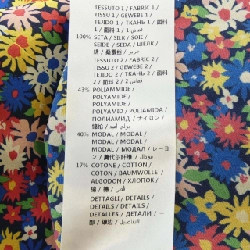 TESSUTO 1 / FABRIC 1
TISSU 1 / GEWEBE 1 /
TEJIDO 1 / ТКАНЬ 1 / 面料
1 / 面料 1 /
100% SETA / SILK / SOIE /
SEIDE / SEDA /
TESSUTO 2 / FABRIC 2 /
TISSU 2 / GEWEBE 2 /
TEJIDO 2 / ТКАНЬ 2 / 面料
2 / 面料 2 /
43% POLIAMMIDE /
POLYAMIDE /
POLYAMID / POLIAMIDA /
ПОЛИАМИД / ナイロン /
40% MODAL / MODAL /
MODAL / MODAL /
MODAL / МОДАЛ / レーヨ
ン /
17% COTONE / COTTON /
COTON / BAUMWOLLE /
ALGODON / ХЛОПОК /
綿 / 棉 /
DETTAGLI / DETAILS /
DETAILS / DETAILS /
DETALLES / ДЕТАЛИ /